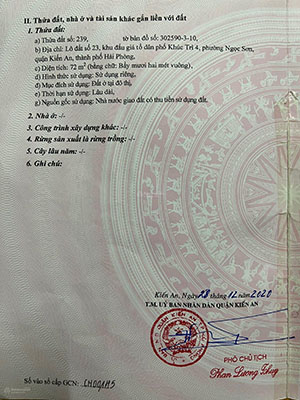 II. Thửa đất, nhà ở và tài sản khác gắn liền với đất
1. Thửa đất:
a) Thửa đất số: 239, tờ bản đồ số: 302590-3-10,
b) Địa chỉ: Lô đất số 23, khu đấu giá tổ dân phố Khúc Trì 4, phường Ngọc Sơn,
quận Kiến An, thành phố Hải Phòng,
c) Diện tích: 72 m² (bằng chữ: Bảy mươi hai mét vuông),
d) Hình thức sử dụng: Sử dụng riêng,
đ) Mục đích sử dụng: Đất ở tại đô thị,
e) Thời hạn sử dụng: Lâu dài,
g) Nguồn gốc sử dụng: Nhà nước giao đất có thu tiền sử dụng đất.
2. Nhà ở: -/-
3. Công trình xây dựng khác: -/-
4. Rừng sản xuất là rừng trồng: -/-
5. Cây lâu năm: -/-
6. Ghi chú:
Kiến An, Ngày 28 tháng 12 / 2020
T.M. UỶ BAN NHÂN DÂN QUẬN KIẾN AN
PHÓ CHỦ TỊCH
Phan Lương Thuy
Số vào sổ cấp GCN: